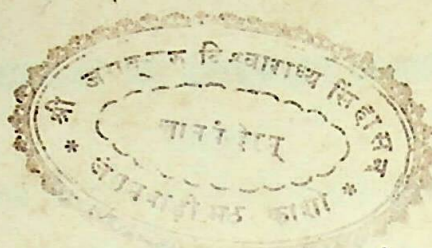 श्री जगद्गुरु विश्वाराध्य सिंहासन
* जंगमवाडी मठ काशी *